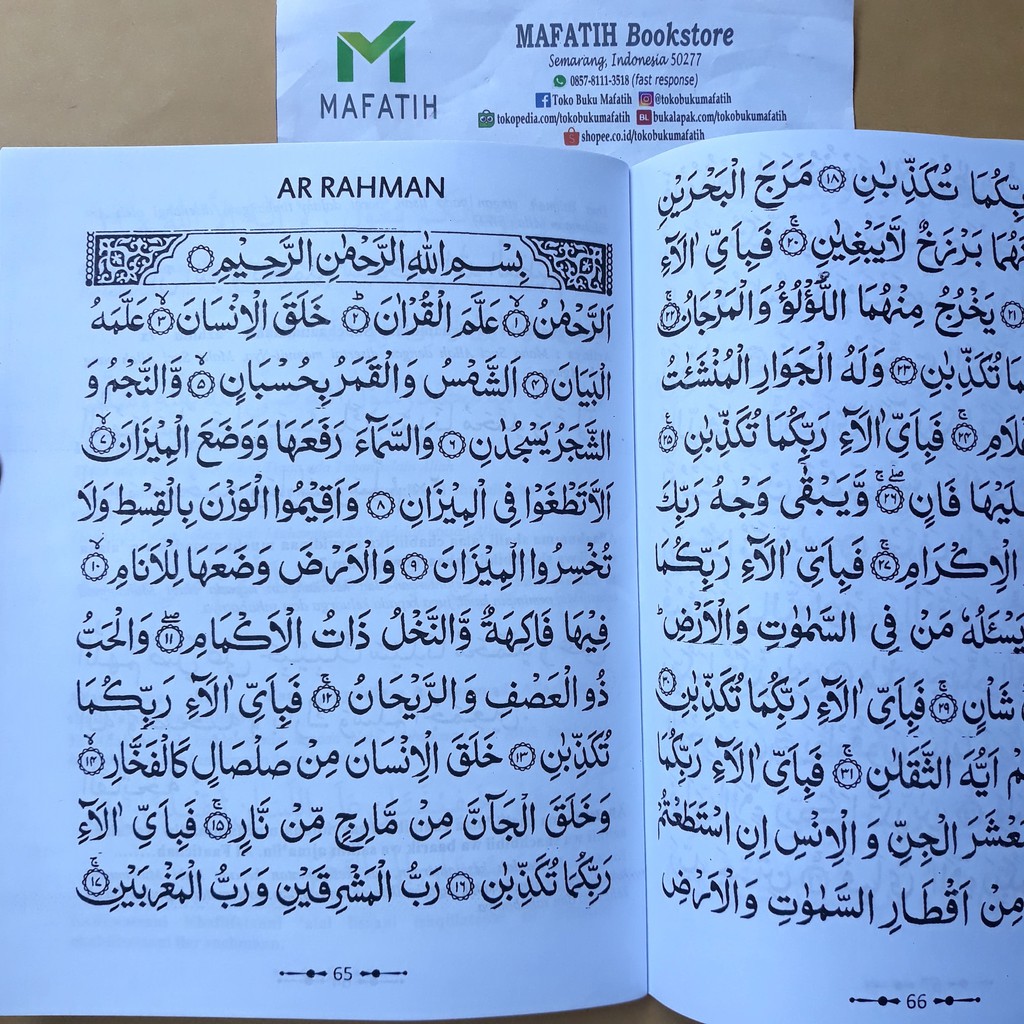 MAFATIH
MAFATIH Bookstore
Semarang, Indonesia 50277
0857-8111-3518 (fast response)
Toko Buku Mafatih @tokobukumafatih
tokopedia.com/tokobukumafatih BL bukalapak.com/tokobukumafatih
shopee.co.id/tokobukumafatih
AR RAHMAN
بِسْمِ اللّٰهِ الرَّحْمٰنِ الرَّحِيْمِ
اَلرَّحْمٰنُۙ ١ عَلَّمَ الْقُرْاٰنَۗ ٢ خَلَقَ الْاِنْسَانَۙ ٣ عَلَّمَهُ
الْبَيَانَ ٤ اَلشَّمْسُ وَالْقَمَرُ بِحُسْبَانٍۙ ٥ وَّالنَّجْمُ وَ
الشَّجَرُ يَسْجُدٰنِ ٦ وَالسَّمَاۤءَ رَفَعَهَا وَوَضَعَ الْمِيْزَانَۙ ٧
اَلَّا تَطْغَوْا فِى الْمِيْزَانِ ٨ وَاَقِيْمُوا الْوَزْنَ بِالْقِسْطِ وَلَا
تُخْسِرُوا الْمِيْزَانَ ٩ وَالْاَرْضَ وَضَعَهَا لِلْاَنَامِۙ ١٠
فِيْهَا فَاكِهَةٌ وَّالنَّخْلُ ذَاتُ الْاَكْمَامِۖ ١١ وَالْحَبُّ
ذُو الْعَصْفِ وَالرَّيْحَانُۚ ١٢ فَبِاَيِّ اٰلَاۤءِ رَبِّكُمَا
تُكَذِّبٰنِ ١٣ خَلَقَ الْاِنْسَانَ مِنْ صَلْصَالٍ كَالْفَخَّارِۙ ١٤
وَخَلَقَ الْجَاۤنَّ مِنْ مَّارِجٍ مِّنْ نَّارٍۚ ١٥ فَبِاَيِّ اٰلَاۤءِ
رَبِّكُمَا تُكَذِّبٰنِ ١٦ رَبُّ الْمَشْرِقَيْنِ وَرَبُّ الْمَغْرِبَيْنِۚ ١٧
65
تُكَذِّبٰنِ ١٨ مَرَجَ الْبَحْرَيْنِ
بَرْزَخٌ لَّا يَبْغِيٰنِۚ ٢٠ فَبِاَيِّ اٰلَاۤءِ
٢١ يَخْرُجُ مِنْهُمَا اللُّؤْلُؤُ وَالْمَرْجَانُۚ ٢٢
تُكَذِّبٰنِ ٢٣ وَلَهُ الْجَوَارِ الْمُنْشَئٰتُ
٢٤ فَبِاَيِّ اٰلَاۤءِ رَبِّكُمَا تُكَذِّبٰنِ ٢٥
فَانٍۖ ٢٦ وَّيَبْقٰى وَجْهُ رَبِّكَ
الْاِكْرَامِۚ ٢٧ فَبِاَيِّ اٰلَاۤءِ رَبِّكُمَا
يَسْـَٔلُهٗ مَنْ فِى السَّمٰوٰتِ وَالْاَرْضِۗ
شَأْنٍۚ ٢٩ فَبِاَيِّ اٰلَاۤءِ رَبِّكُمَا تُكَذِّبٰنِ ٣٠
اَيُّهَ الثَّقَلٰنِۚ ٣١ فَبِاَيِّ اٰلَاۤءِ رَبِّكُمَا
الْجِنِّ وَالْاِنْسِ اِنِ اسْتَطَعْتُمْ
مِنْ اَقْطَارِ السَّمٰوٰتِ وَالْاَرْضِ
66